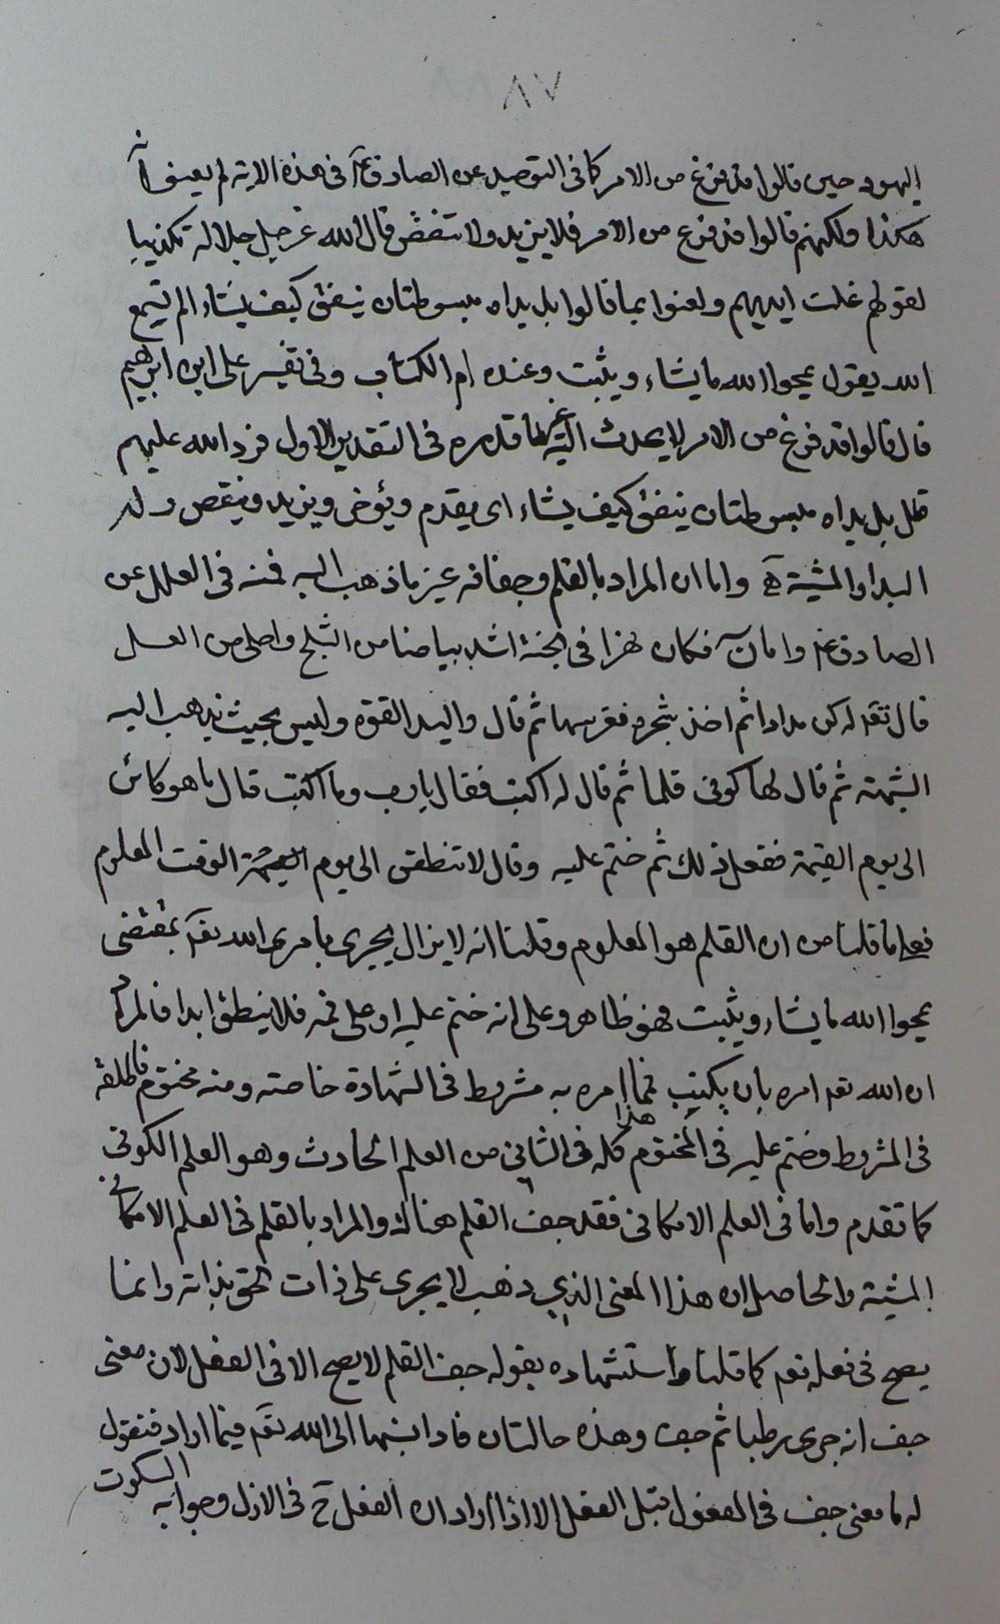 ٨٧
اليهود حين قالوا قد فرغ من الامر كما فى التوحيد عن الصادق ع فى هذه الاية لم يعنوا انه
هكذا ولكنهم قالوا قد فرغ من الامر فلا يزيد ولا ينقص قال الله عز جل جلاله تكذيبا
لقولهم غلت ايديهم ولعنوا بما قالوا بل يداه مبسوطتان ينفق كيف يشاء الم تسمع
الله يقول يمحوا الله ما يشاء ويثبت وعنده ام الكتاب وفى تفسير على ابن ابراهيم
قال قالوا قد فرغ من الامر لا يحدث الله غير ما قدره فى التقدير الاول فرد الله عليهم
قل بل يداه مبسوطتان ينفق كيف يشاء اى يقدم ويؤخر ويزيد وينقص وله
البداء والمشية واما ان المراد بالقلم وجفافه غير ما ذهب اليه فمنه فى العلل عن
الصادق ع واما ن فكان نهرا فى الجنة اشد بياضا من الثلج واحلى من العسل
قال تعه له كن مدادا ثم اخذ شجرة فغرسها ثم قال واليد القوة وليس بحيث تذهب اليه
المشبهة ثم قال لها كونى قلما ثم قال له اكتب فقال يا رب وما اكتب قال ما هو كائن
الى يوم القيمة ففعل ذلك ثم ختم عليه وقال لا تنطقن الى يوم الوقت المعلوم
فعلى ما قلنا من ان القلم هو المعلوم وقلنا انه لا يزال يجرى بامر الله تعه بمقتضى
يمحوا الله ما يشاء ويثبت فهو ظاهر وعلى انه ختم عليه او على فمه فلا ينطق ابدا فالمراد
ان الله تعه امره بان يكتب فما امره به مشروط فى الشهادة خاصته ومنه مختوم فاطلقه
فى المشروط وختم عليه فى المختوم هذا كله فى الثانى من العلم الحادث وهو العلم الكونى
كما تقدم واما فى العلم الامكانى فقد جف القلم هناك والمراد بالقلم فى العلم الامكانى
المشية والحاصل ان هذا المعنى الذى ذهب لا يجرى على ذات الحق بذاته وانما
يصح فى فعله تعه كما قلنا واستشهاده بقوله جف القلم لا يصح الا فى الفعل لان معنى
جف انه جرى رطبا ثم جف وهذه حالتان فاذا نسبها الى الله تعه فيما اراد فنقول
له ما معنى جف فى المفعول قبل الفعل الا اذا اراد ان الفعل فى الازل وجوابه السكوت